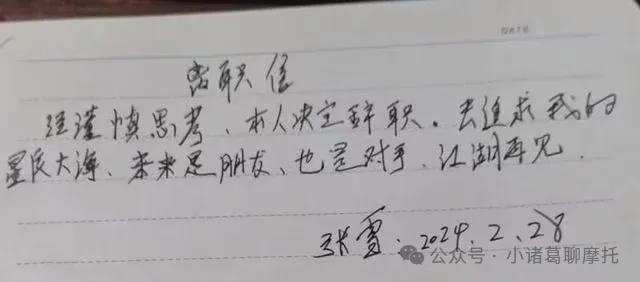 DATE
离职信
经谨慎思考、本人决定辞职。去追求我的
星辰大海、未来是朋友、也是对手、江湖再见.
张雪. 2024.2.28
公众号·小诸葛聊摩托